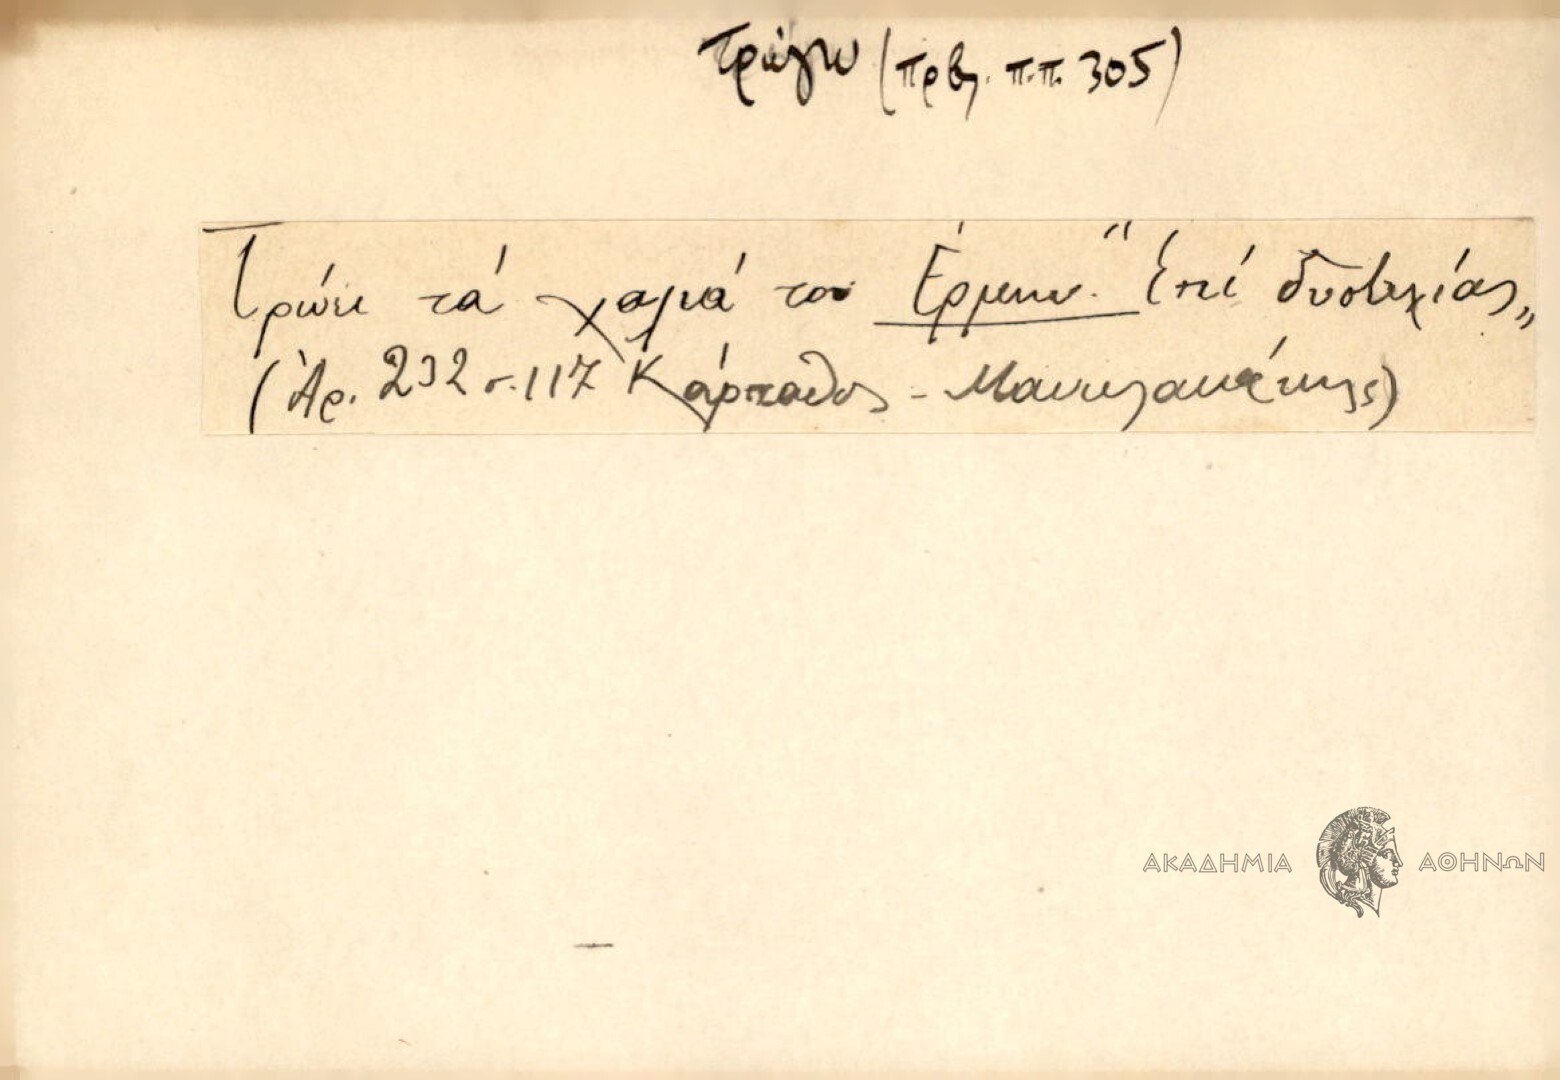 Τρώγω (πρβλ. π.π. 305)
Τρώει τά χαμιά του "Επί δυστυχίας„
(Αρ. 232 σ. 117 Κάρπαθος - Μανωλακάκης)
ΑΚΑΔΗΜΙΑ ΑΘΗΝΩΝ